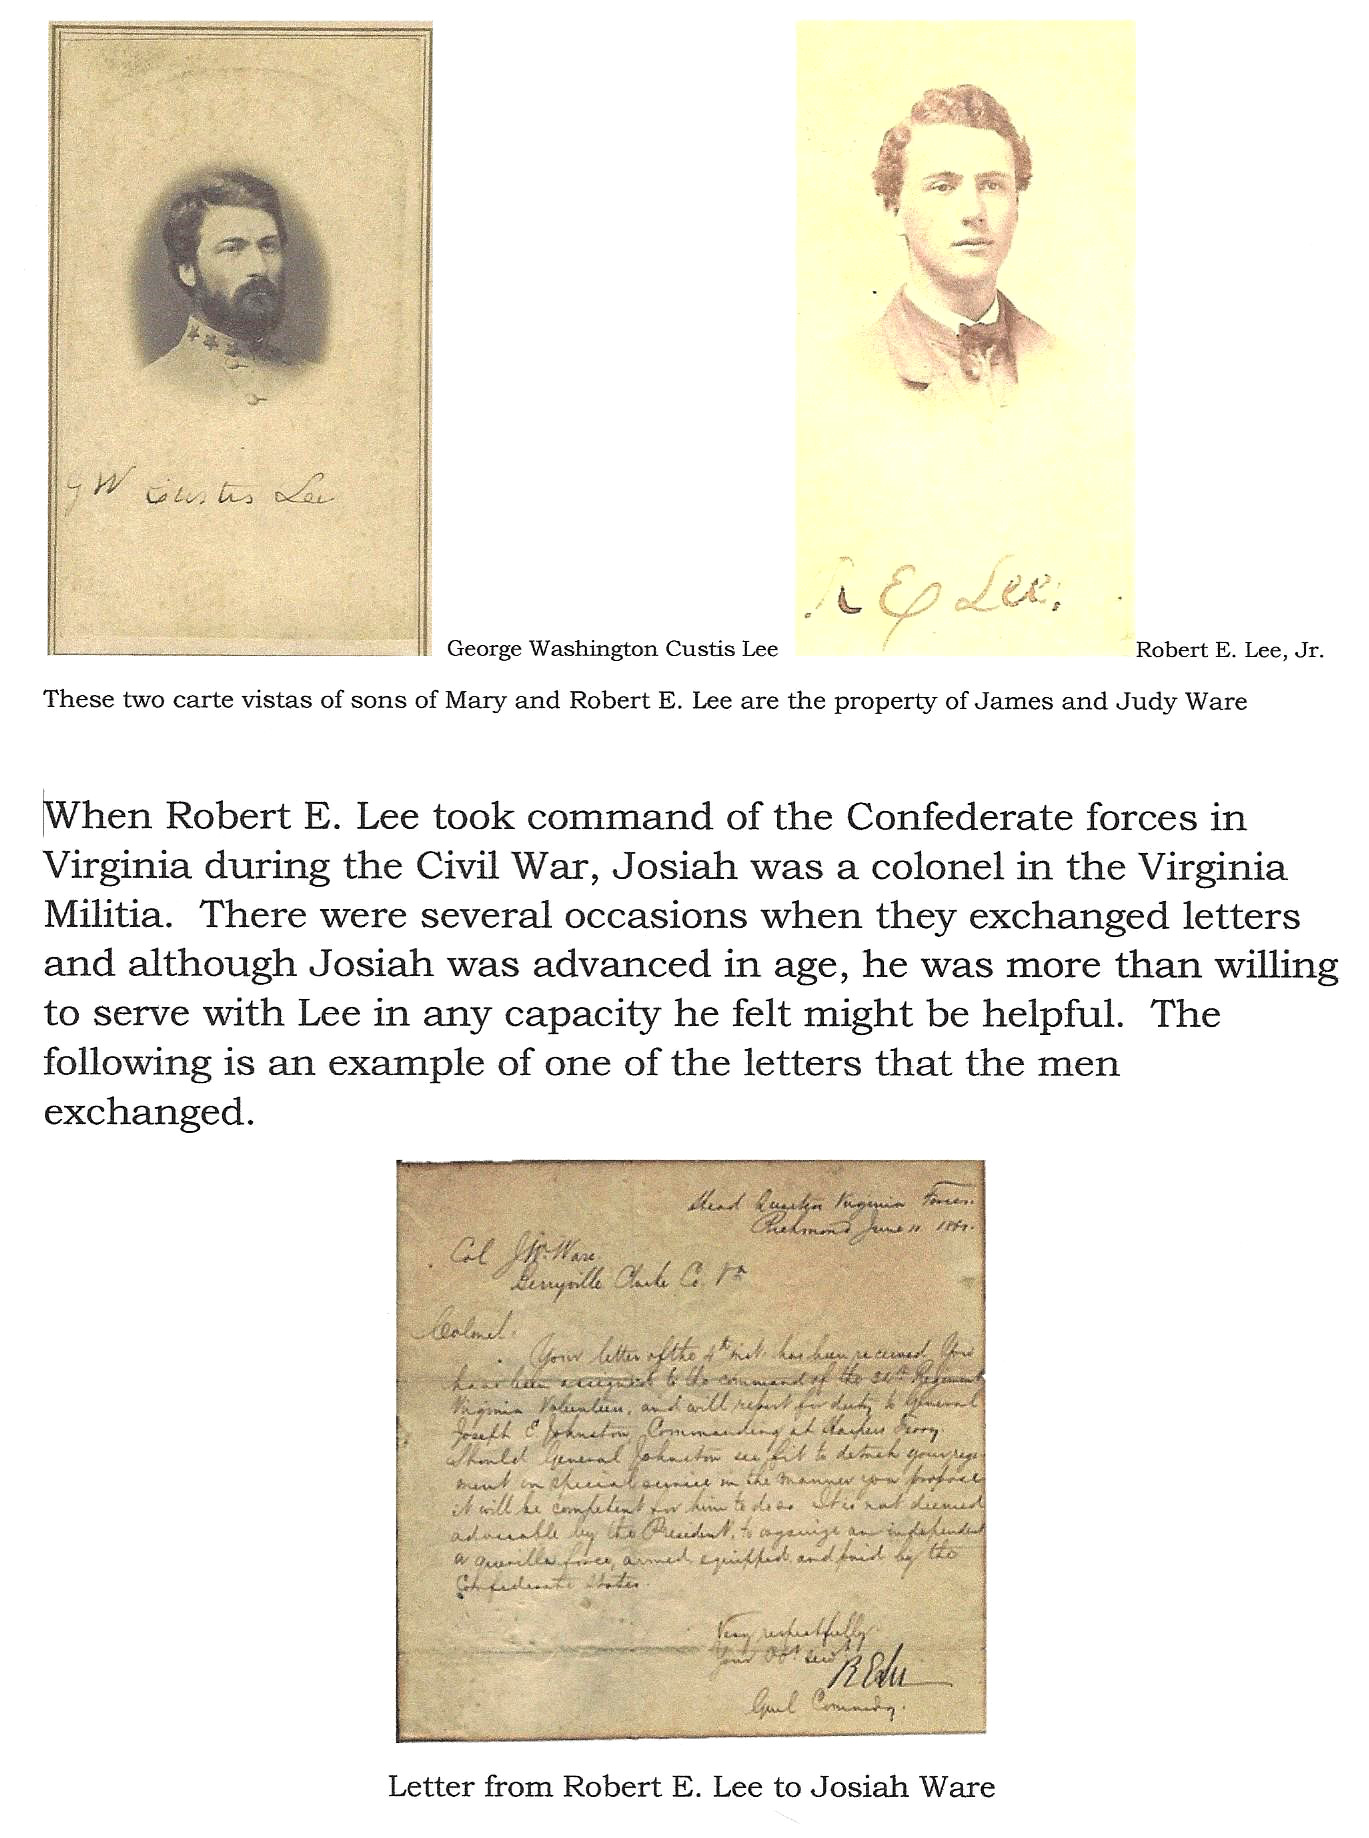 G W Custis Lee
R E Lee.
George Washington Custis Lee
Robert E. Lee, Jr.
These two carte vistas of sons of Mary and Robert E. Lee are the property of James and Judy Ware
When Robert E. Lee took command of the Confederate forces in
Virginia during the Civil War, Josiah was a colonel in the Virginia
Militia.  There were several occasions when they exchanged letters
and although Josiah was advanced in age, he was more than willing
to serve with Lee in any capacity he felt might be helpful.  The
following is an example of one of the letters that the men
exchanged.
Head Quarters Virginia Forces.
Richmond June 11 1861.
Col J. W. Ware.
Berryville Clarke Co. Va
Colonel.
Your letter of the 4th inst. has been received. You
have been assigned to the command of the Regiment
Virginia Volunteers, and will report for duty to General
Joseph E Johnston, Commanding at Harpers Ferry.
Should General Johnston see fit to detach your regi-
ment on special service in the manner you propose
it will be competent for him to do so. It is not deemed
advisable by the President, to organize an independent
a guerilla force, armed, equipped, and paid by the
Confederate States.
Very respectfully
Your Obt servt
R E Lee
Genl Commdg.
Letter from Robert E. Lee to Josiah Ware